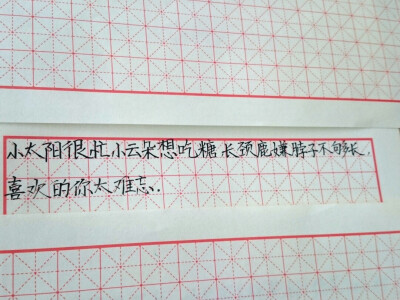 小太阳很忙小云朵想吃糖长颈鹿嫌脖子不够长，
喜欢的你太难忘.